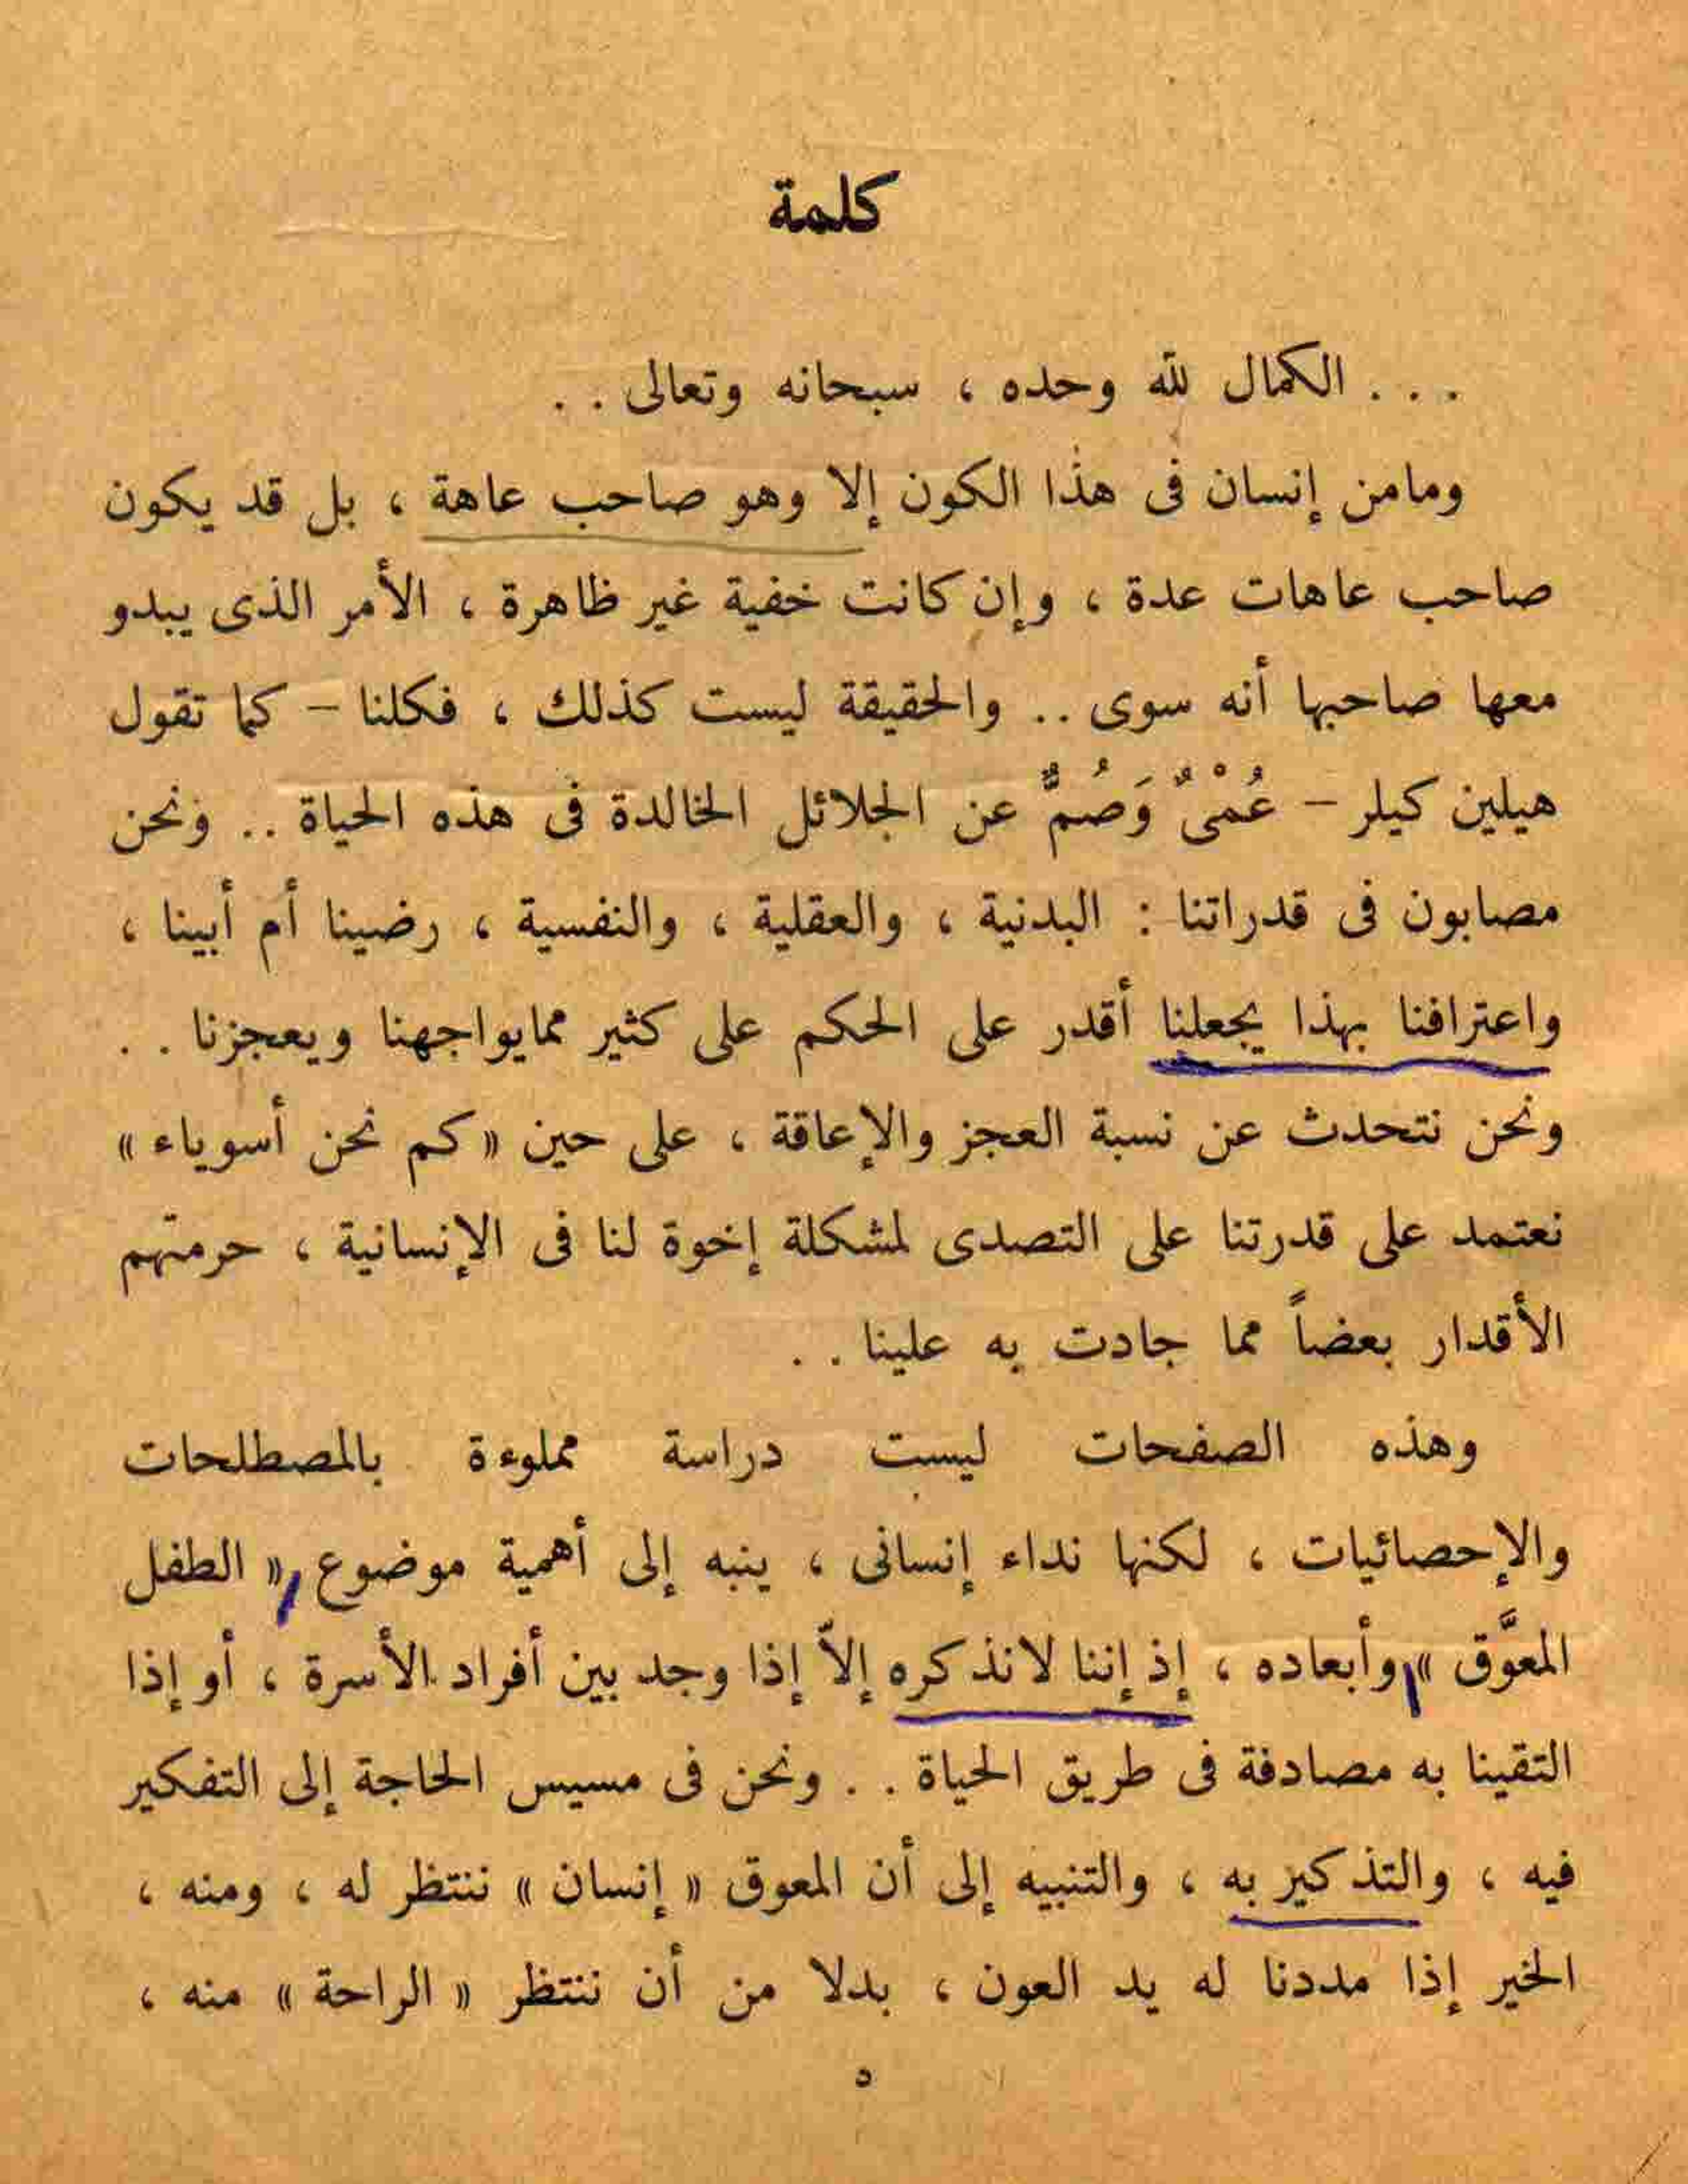 كلمة
. . . الكمال لله وحده ، سبحانه وتعالى . .
ومامن إنسان فى هذا الكون إلا وهو صاحب عاهة ، بل قد يكون
صاحب عاهات عدة ، وإن كانت خفية غير ظاهرة ، الأمر الذى يبدو
معها صاحبها أنه سوى .. والحقيقة ليست كذلك ، فكلنا – كما تقول
هيلين كيلر – عُمْىٌ وَصُمٌّ عن الجلائل الخالدة فى هذه الحياة .. ونحن
مصابون فى قدراتنا : البدنية ، والعقلية ، والنفسية ، رضينا أم أبينا ،
واعترافنا بهذا يجعلنا أقدر على الحكم على كثير ممايواجهنا ويعجزنا . .
ونحن نتحدث عن نسبة العجز والإعاقة ، على حين « كم نحن أسوياء »
نعتمد على قدرتنا على التصدى لمشكلة إخوة لنا فى الإنسانية ، حرمتهم
الأقدار بعضاً مما جادت به علينا . .
وهذه الصفحات ليست دراسة مملوءة بالمصطلحات
والإحصائيات ، لكنها نداء إنسانى ، ينبه إلى أهمية موضوع « الطفل
المعوَّق » وأبعاده ، إذ إننا لانذكره إلاّ إذا وجد بين أفراد الأسرة ، أو إذا
التقينا به مصادفة فى طريق الحياة . . ونحن فى مسيس الحاجة إلى التفكير
فيه ، والتذكير به ، والتنبيه إلى أن المعوق « إنسان » ننتظر له ، ومنه ،
الخير إذا مددنا له يد العون ، بدلا من أن ننتظر « الراحة » منه ،
٥